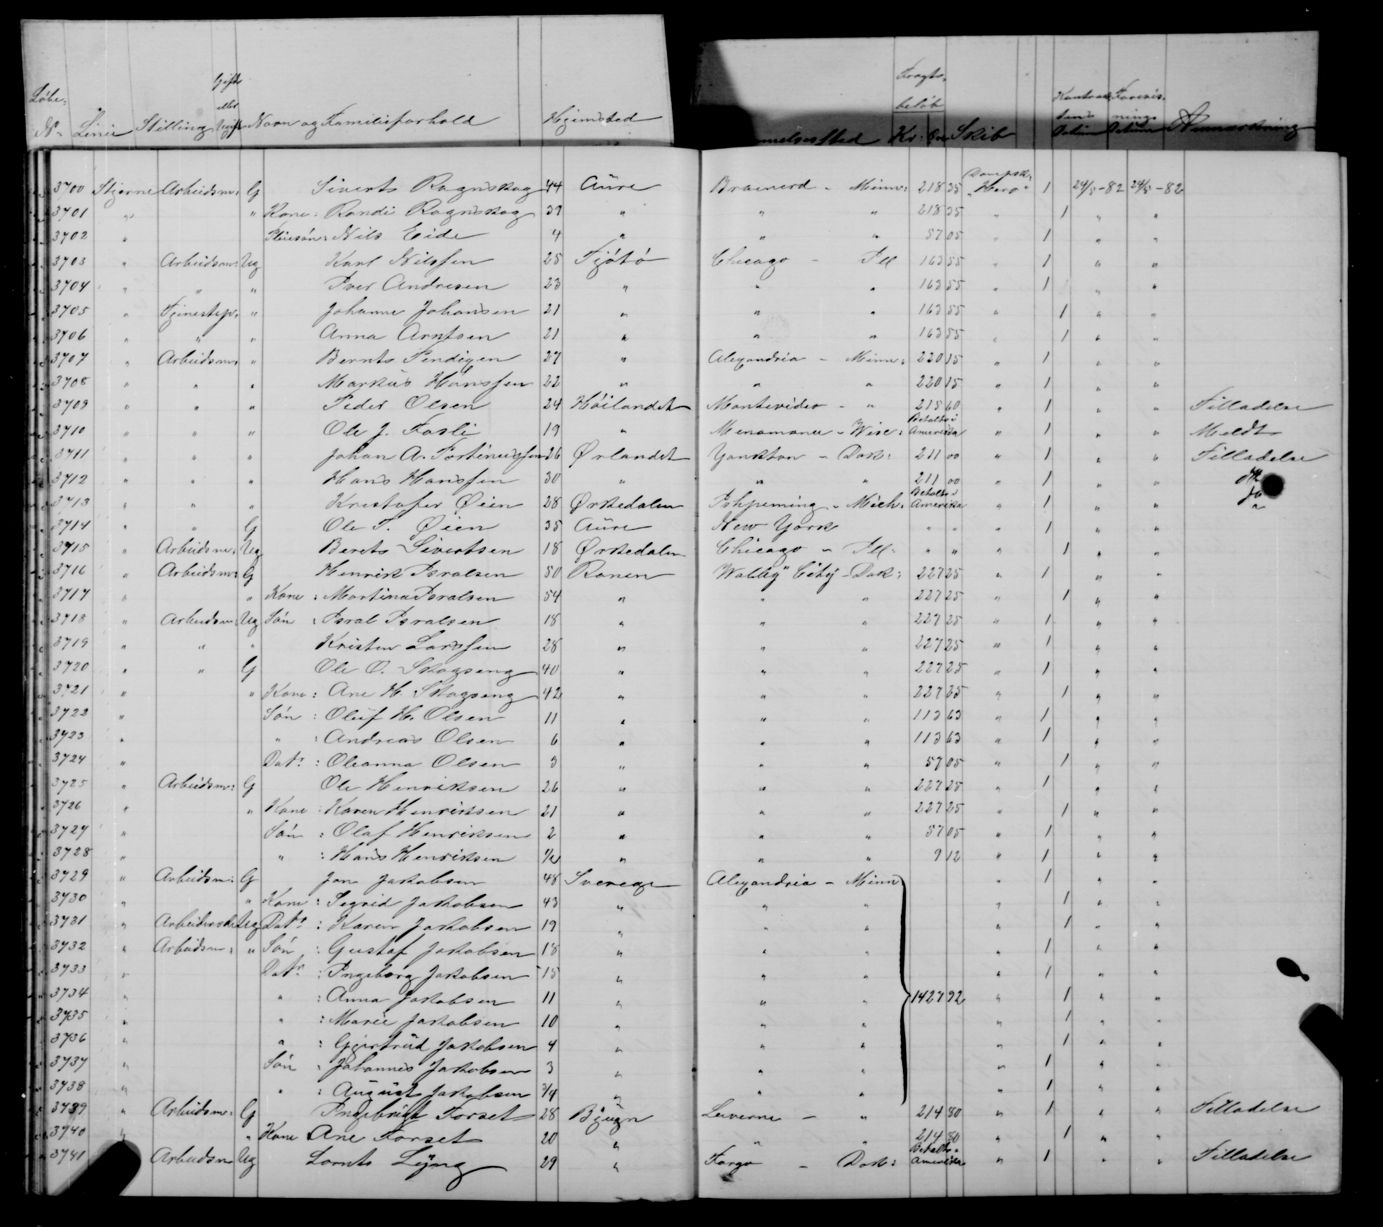 Løbe-No. Linie Stilling Gift eller Ugift Navn og Familieforhold Hjemsted Fragtbeløb Kr. Øre Skib Anmærkning
3700 Stjerne Arbeidsm: G Siverts Rognskog 44 Aure Brainerd - Minn: 218 35 Dampsk. "Hero" 1 24/5-82 24/5-82
3701 " " Kone: Randi Rognskog 39 " " " 218 35 1 " "
3702 " Pleiesøn: Nils Eide 4 " " " 57 05 1 " "
3703 " Arbeidsm: Ug Karl Nilssen 25 Fjøtø Chicago - Ill 163 55 " 1 " "
3704 " " " Iver Andresen 23 " " " 163 55 " 1 " "
3705 " Tjenestepi: " Johanne Johansen 21 " " " 163 55 " 1 " "
3706 " " " Anna Arntsen 21 " " " 163 55 " 1 " "
3707 " Arbeidsm: " Bernts 27 " Alexandria - Minn: 220 15 " 1 " "
3708 " " " Markus Hanssen 22 " " " 220 15 " 1 " "
3709 " " " Peder Olsen 24 Høilandet Montevideo - " 215 60 " 1 " " Tilladelse
3710 " " " Ole J. Fosli 19 " Menomonee - Wisc: Betalt i Amerika " 1 " " Meldt
3711 " " " Johan A. 26 Ørlandet Yankton - Dak: 211 00 " 1 " " Tilladelse
3712 " " " Hans Hanssen 30 " " " 211 00 " 1 " "
3713 " " " Kristofer Øien 28 Ørkedalen Ishpeming - Mich: Betalt i Amerika " 1 " "
3714 " " G Ole T. Øien 35 Aure New York " " " 1 " "
3715 " Arbeidsm: Ug Berets Sivertsen 18 Ørkedalen Chicago - Ill: " " " 1 " "
3716 " Arbeidsm: G Henrik Israelsen 50 Ranen City - Dak: 227 25 " 1 " "
3717 " " Kone: Martina Israelsen 54 " " " 227 25 " 1 " "
3718 " Arbeidsm: Ug Søn: Israel Israelsen 18 " " " 227 25 " 1 " "
3719 " " " Kristen Larssen 28 " " " 227 25 " 1 " "
3720 " " G Ole O. Skogseng 40 " " " 227 25 " 1 " "
3721 " " Kone: Ane H. Skogseng 42 " " " 227 25 " 1 " "
3722 " Søn: Oluf H. Olsen 11 " " " 113 63 " 1 " "
3723 " " : Andreas Olsen 6 " " " 113 63 " 1 " "
3724 " Datr: Oleanna Olsen 3 " " " 57 05 " 1 " "
3725 " Arbeidsm: G Ole Henriksen 26 " " " 227 25 " 1 " "
3726 " " Kone: Karen Henriksen 21 " " " 227 25 " 1 " "
3727 " Søn: Olaf Henriksen 2 " " " 57 05 " 1 " "
3728 " " : Hans Henriksen " " " 9 12 " 1 " "
3729 " Arbeidsm: G Jon Jakobsen 48 Sverige Alexandria - Minn " 1 " "
3730 " " Kone: Sigrid Jakobsen 43 " " " " 1 " "
3731 " Ug Datr: Karen Jakobsen 19 " " " " 1 " "
3732 " Arbeidsm: " Søn: Gustaf Jakobsen 18 " " " " 1 " "
3733 " Datr: Ingeborg Jakobsen 15 " " " " 1 " "
3734 " " : Anna Jakobsen 11 " " " 1427 92 " 1 " "
3735 " " : Marie Jakobsen 10 " " " " 1 " "
3736 " " : Gjertrud Jakobsen 4 " " " " 1 " "
3737 " Søn: Johannes Jakobsen 3 " " " " 1 " "
3738 " " : August Jakobsen 3/4 " " " " 1 " "
3739 " Arbeidsm: G Ingebrigt Forset 28 Bjugn Luverne - " 214 80 " 1 " " Tilladelse
3740 " " Kone Ane Forset 20 " " " 214 80 " 1 " "
3741 Arbeidsm Ug Lornts Lyng 29 " Fargo - Dak: Betalt i Amerika " 1 " " Tilladelse